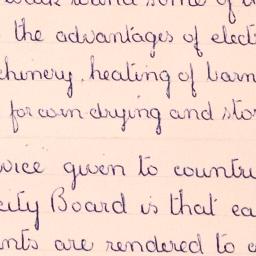 walk round some of
the advantages of elect
chinery, heating of barn
for corn drying and sto
vice given to countr
city Board is that ea
nts are rendered to